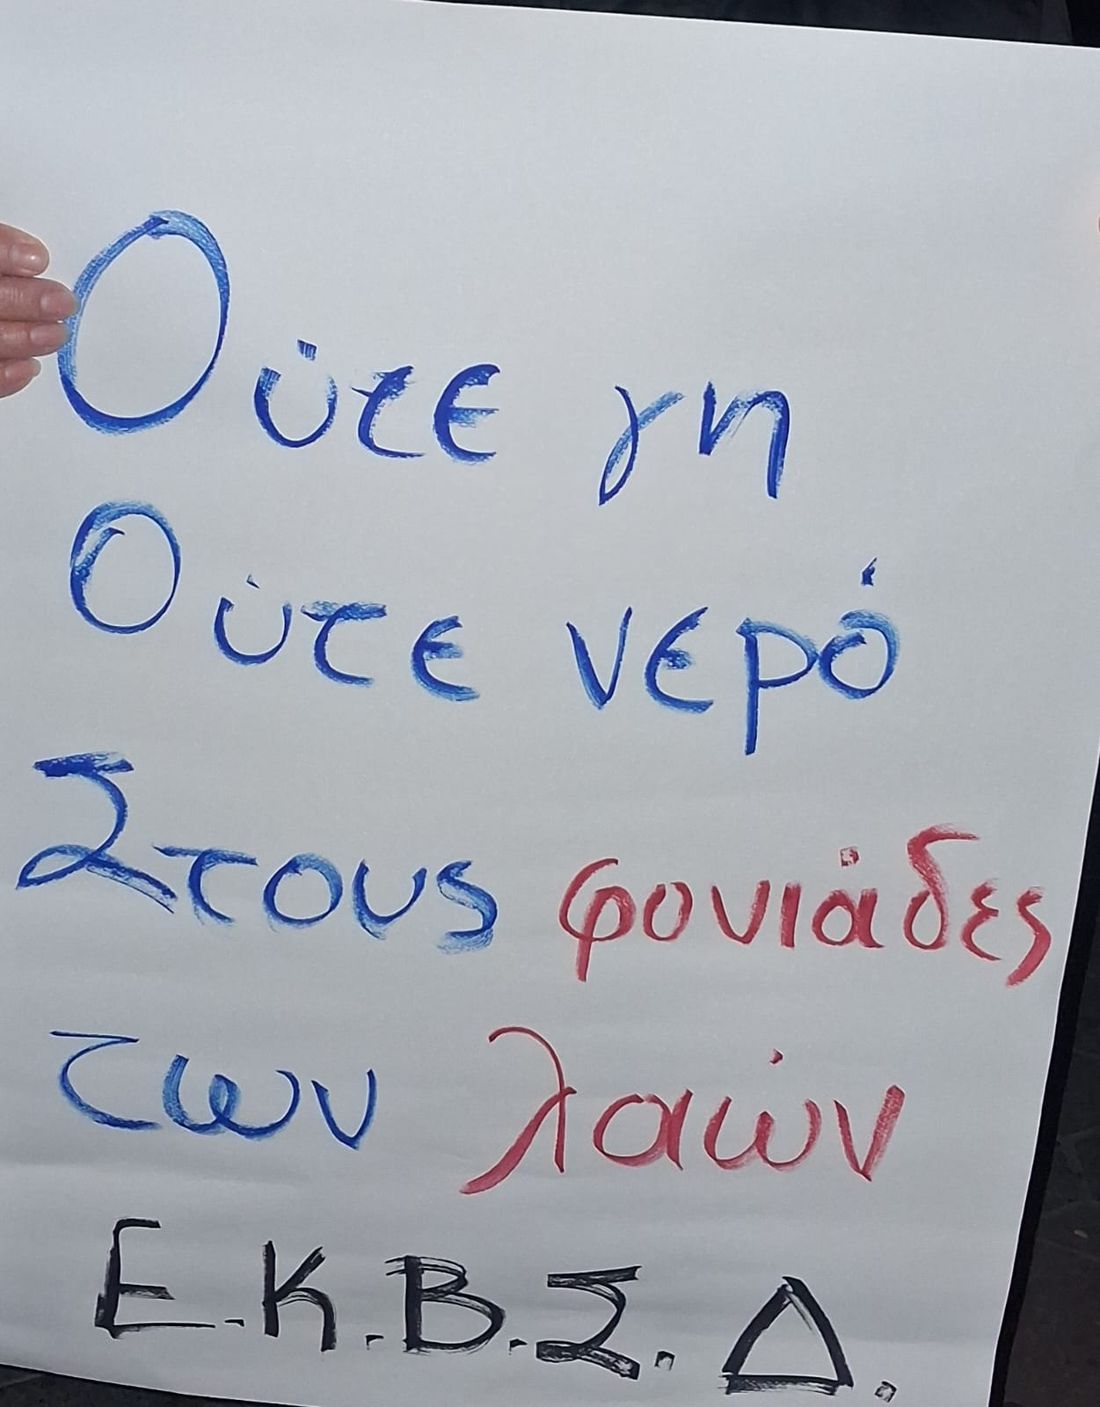 Ούτε γη
Ούτε νερό
Στους φονιάδες
των λαών
Ε.Κ.Β.Σ.Δ.